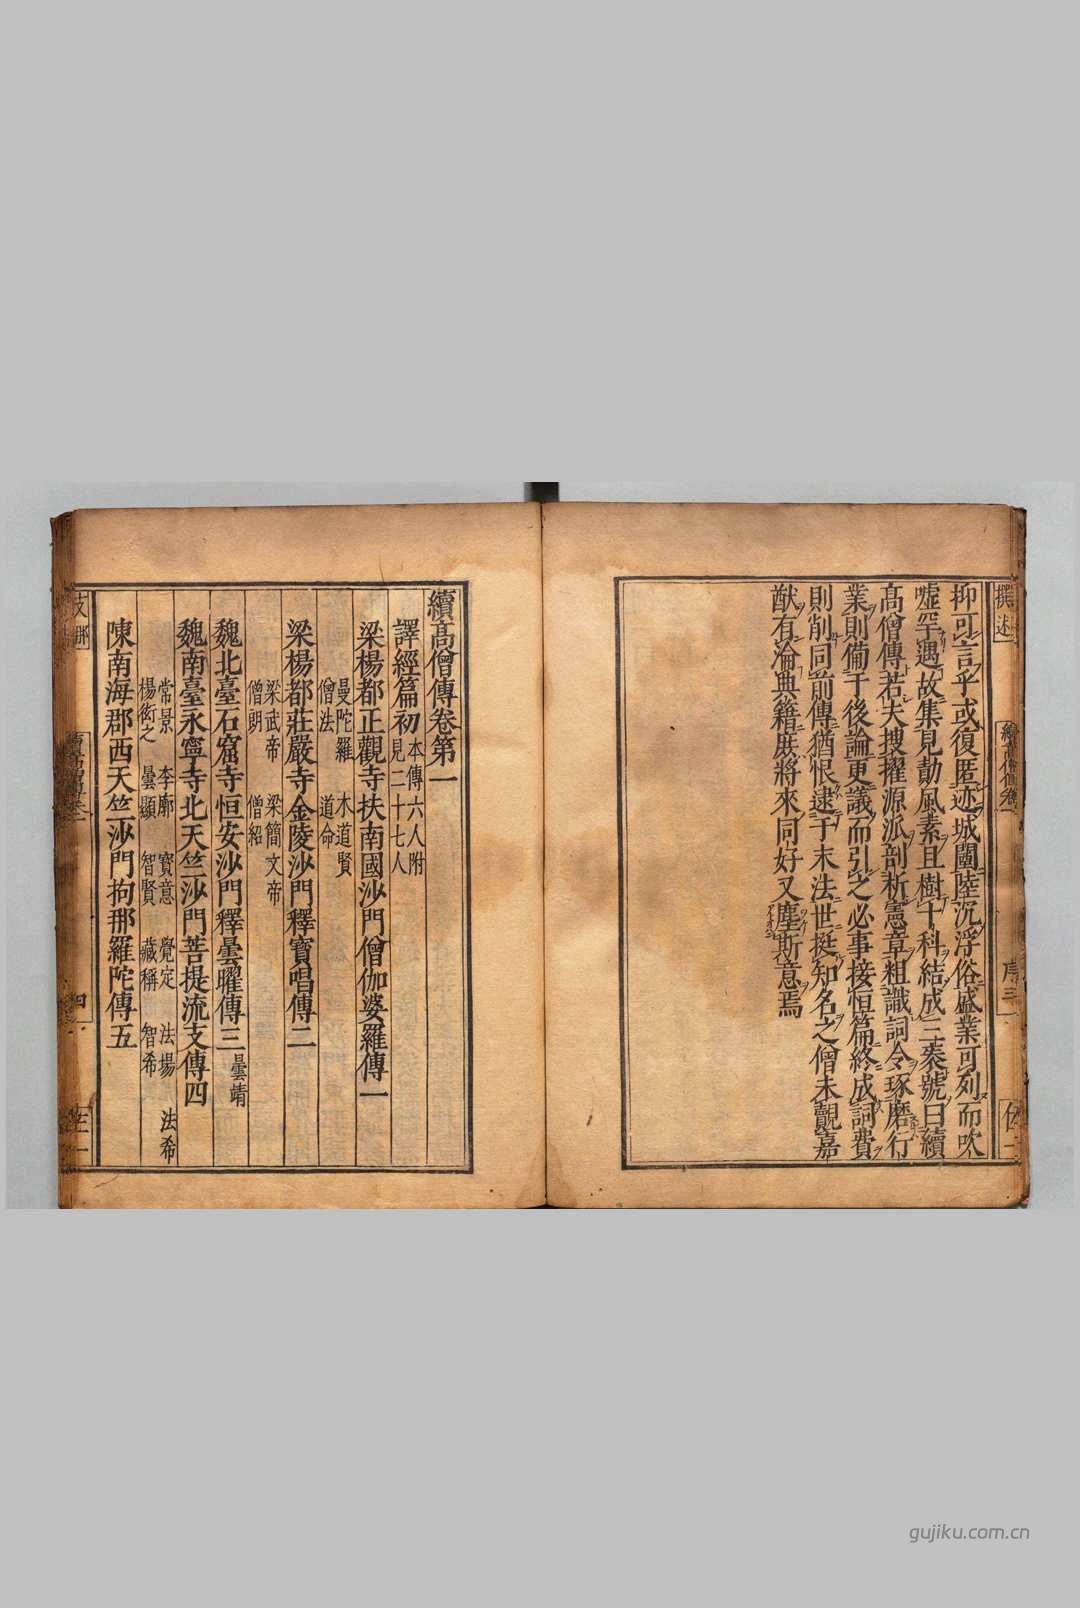 撰述
抑可言乎或復匿迹城闉陸沉浮俗盛業可列而吹
噓罕遇故集見勣風素且樹十科結成三袠號曰續
高僧傳若夫搜擢源派剖析憲章粗識詞令琢磨行
業則備于後論更議而引之必事接恒篇終成詞費
則削同前傳猶恨逮于末法世挺知名之僧未覿嘉
猷有淪典籍庶將來同好又塵斯意焉
續高僧傳卷第一
譯經篇初本傳六人附
見二十七人
梁楊都正觀寺扶南國沙門僧伽婆羅傳一
曼陀羅 木道賢
僧法 道命
梁楊都莊嚴寺金陵沙門釋寶唱傳二
梁武帝 梁簡文帝
僧朗 僧紹
魏北臺石窟寺恒安沙門釋曇曜傳三曇靖
魏南臺永寧寺北天竺沙門菩提流支傳四
常景 李廓 寶意 覺定 法場 法希
楊衒之 曇顯 智賢 藏稱 智希
陳南海郡西天竺沙門拘那羅陀傳五
四
gujiku.com.cn